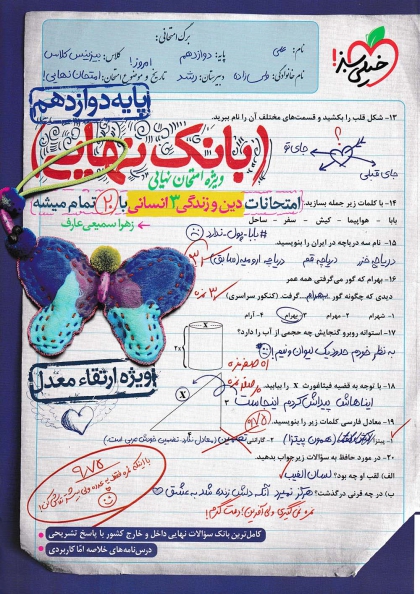 برگ امتحانی:
نام: علی
پایه: دوازدهم
کلاس: بیزینس کلاس
خیلی سبز!
نام خانوادگی:
دبیرستان: رشد
تاریخ و موضوع امتحان: امروز! امتحان نهایی!
پایه دوازدهم
۱۳- شکل قلب را بکشید و قسمت‌های مختلف آن را نام ببرید.
بانک نهایی
جای تو
جای قبلی
ویژه امتحان نهایی
امتحانات دین و زندگی ۳ انسانی با ۲۰ تمام میشه
زهرا سمیعی عارف
۱۴- با کلمات زیر جمله بسازید.
بابا - هواپیما - کیش - سفر - ساحل
#بابا-پول-ندارد
۱۵- نام سه دریاچه در ایران را بنویسید.
دریاچه خزر دریاچه قم دریاچه ارومیه (سابق)
۱۶- بهرام که گور می‌گرفتی همه عمر
دیدی که چگونه گور بهرام گرفت. (کنکور سراسری)
۱- شهرام ۲- بهرام ۳- بهرام ۴- آرام
۱۷- استوانه روبرو گنجایش چه حجمی از آب را دارد؟
به نظر خودم حدود یک لیوان و نیم!
x
2x
۱۸- با توجه به قضیه فیثاغورث X را بیابید.
ایناهاش پیداش کردم اینجاست
X
۳
ویژه ارتقاء معدل
۱۹- معادل فارسی کلمات زیر را بنویسید.
۲۰- در مورد حافظ به سوالات زیر جواب بدهید.
الف) لقب او چه بود؟ لسان الغیب
ب) در چه قرنی درگذشت؟ هرگز نمیرد آنکه دلش زنده شد به عشق
۹/۷۵
کامل‌ترین بانک سؤالات نهایی داخل و خارج کشور با پاسخ تشریحی
درس‌نامه‌های خلاصه اما کاربردی